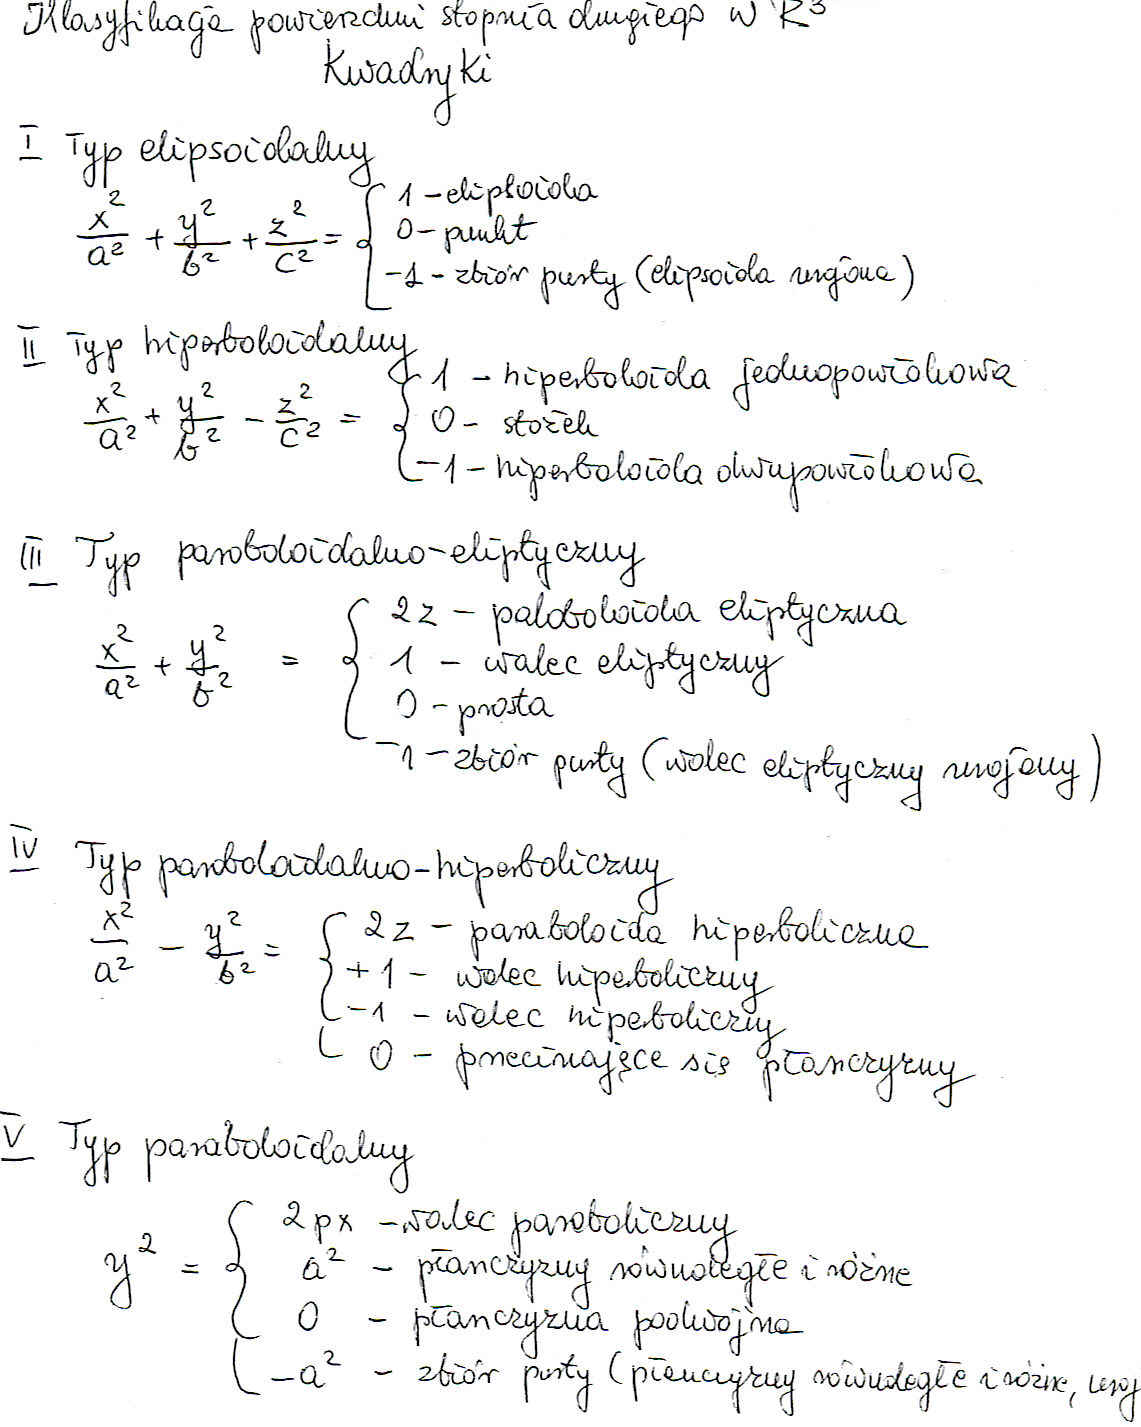 Klasyfikacja powierzchni stopnia drugiego w R³
Kwadryki
I Typ elipsoidalny
x²/a² + y²/b² + z²/c² = { 1 – elipsoida
0 – punkt
-1 – zbiór pusty (elipsoida urojona)
II Typ hiperboloidalny
x²/a² + y²/b² - z²/c² = { 1 – hiperboloida jednopowłokowa
0 – stożek
-1 – hiperboloida dwupowłokowa
III Typ paraboloidalno-eliptyczny
x²/a² + y²/b² = { 2z – paraboloida eliptyczna
1 – walec eliptyczny
0 – prosta
-1 – zbiór pusty (walec eliptyczny urojony)
IV Typ paraboloidalno-hiperboliczny
x²/a² - y²/b² = { 2z – paraboloida hiperboliczna
+1 – walec hiperboliczny
-1 – walec hiperboliczny
0 – przecinające się płaszczyzny
V Typ paraboloidalny
y² = { 2px – walec paraboliczny
a² – płaszczyzny równoległe i różne
0 – płaszczyzna podwójna
-a² – zbiór pusty (płaszczyzny równoległe i różne, uroj